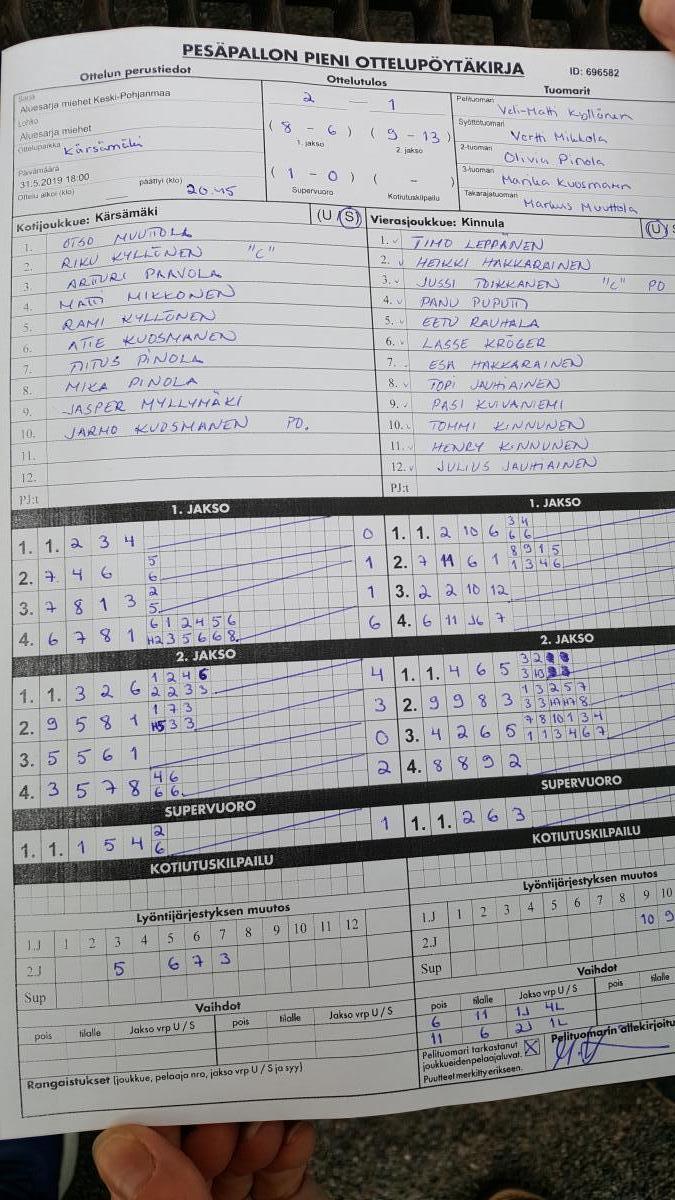 PESÄPALLON PIENI OTTELUPÖYTÄKIRJA
ID: 696582
Ottelun perustiedot
Sarja
Aluesarja miehet Keski-Pohjanmaa
Lohko
Aluesarja miehet
Ottelupaikka Kärsämäki
Päivämäärä
31.5.2019 18:00
Ottelu alkoi (klo) päättyi (klo) 20.45
Ottelutulos
2 — 1
( 8 - 6 ) ( 9 - 13 )
1. jakso 2. jakso
( 1 - 0 ) ( - )
Supervuoro Kotiutuskilpailu
Tuomarit
Pelituomari Veli-Matti Kyllönen
Syöttötuomari Vertti Mikkola
2-tuomari Olivia Pinola
3-tuomari Marika Kuosmanen
Takarajatuomari Markus Muuttola
Kotijoukkue: Kärsämäki (U / S)
1. OTSO MUUTTOLA
2. RIKU KYLLÖNEN "C"
3. ARTTURI PAAVOLA
4. MATTI MIKKONEN
5. RAMI KYLLÖNEN
6. ATTE KUOSMANEN
7. TIITUS PINOLA
8. MIKA PINOLA
9. JASPER MYLLYMÄKI
10. JARMO KUOSMANEN PO.
11.
12.
PJ:t
Vierasjoukkue: Kinnula (U S
1. TIMO LEPPÄNEN
2. HEIKKI HAKKARAINEN
3. JUSSI TOIKKANEN "C" PO
4. PANU PUPUTTI
5. EETU RAUHALA
6. LASSE KRÖGER
7. ESA HAKKARAINEN
8. TOPI JAUHIAINEN
9. PASI KUIVANIEMI
10. TOMMI KINNUNEN
11. HENRY KINNUNEN
12. JULIUS JAUHIAINEN
PJ:t
1. JAKSO
1. 1. 2 3 4 0
2. 7 4 6 5 6 1
3. 7 8 1 3 2 5 1
4. 6 7 8 1 6 1 2 4 5 6 6
2. JAKSO
1. 1. 3 2 6 1 2 4 6 4
2 2 3 3
2. 9 5 8 1 1 7 3 3
3 3
3. 5 5 6 1 0
4. 3 5 7 8 4 6 2
6 6
SUPERVUORO
1. 1. 1 5 4 2 6 1
KOTIUTUSKILPAILU
1. JAKSO
1. 1. 2 10 6 3 4
6 6
2. 7 11 6 1 8 9 1 5
1 3 4 6
3. 2 2 10 12
4. 6 11 7
2. JAKSO
1. 1. 4 6 5 3 2
2. 9 9 8 3 1 3 2 5 7
3. 4 2 6 5 7 8 10 1 3 4
1 1 3 4 6 7
4. 8 8 9 2
SUPERVUORO
1. 1. 2 6 3
KOTIUTUSKILPAILU
Lyöntijärjestyksen muutos
1.J 1 2 3 4 5 6 7 8 9 10 11 12
2.J 5 6 7 3
Sup
Vaihdot
pois tilalle Jakso vrp U / S pois tilalle Jakso vrp U / S
Rangaistukset (joukkue, pelaaja nro, jakso vrp U / S ja syy)
Lyöntijärjestyksen muutos
1.J 1 2 3 4 5 6 7 8 9 10
2.J 10 9
Sup
Vaihdot
pois tilalle Jakso vrp U / S pois tilalle
6 11 1J 4L
11 6 2J 1L
Pelituomari tarkastanut
joukkueiden pelaajaluvat.
Puutteet merkitty erikseen.
Pelituomarin allekirjoitu